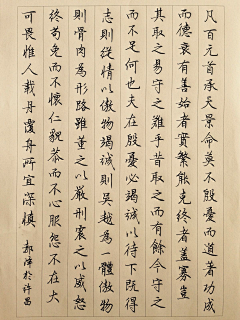 凡百元首承天景命莫不殷憂而道著功成
而德衰有善始者實繁能克終者蓋寡豈
其取之易守之難乎昔取之而有餘今守之
而不足何也夫在殷憂必竭誠以待下既得
志則縱情以傲物竭誠則吳越為一體傲物
則骨肉為行路雖董之以嚴刑震之以威怒
終苟免而不懷仁貌恭而不心服怨不在大
可畏惟人載舟覆舟所宜深慎
於許昌